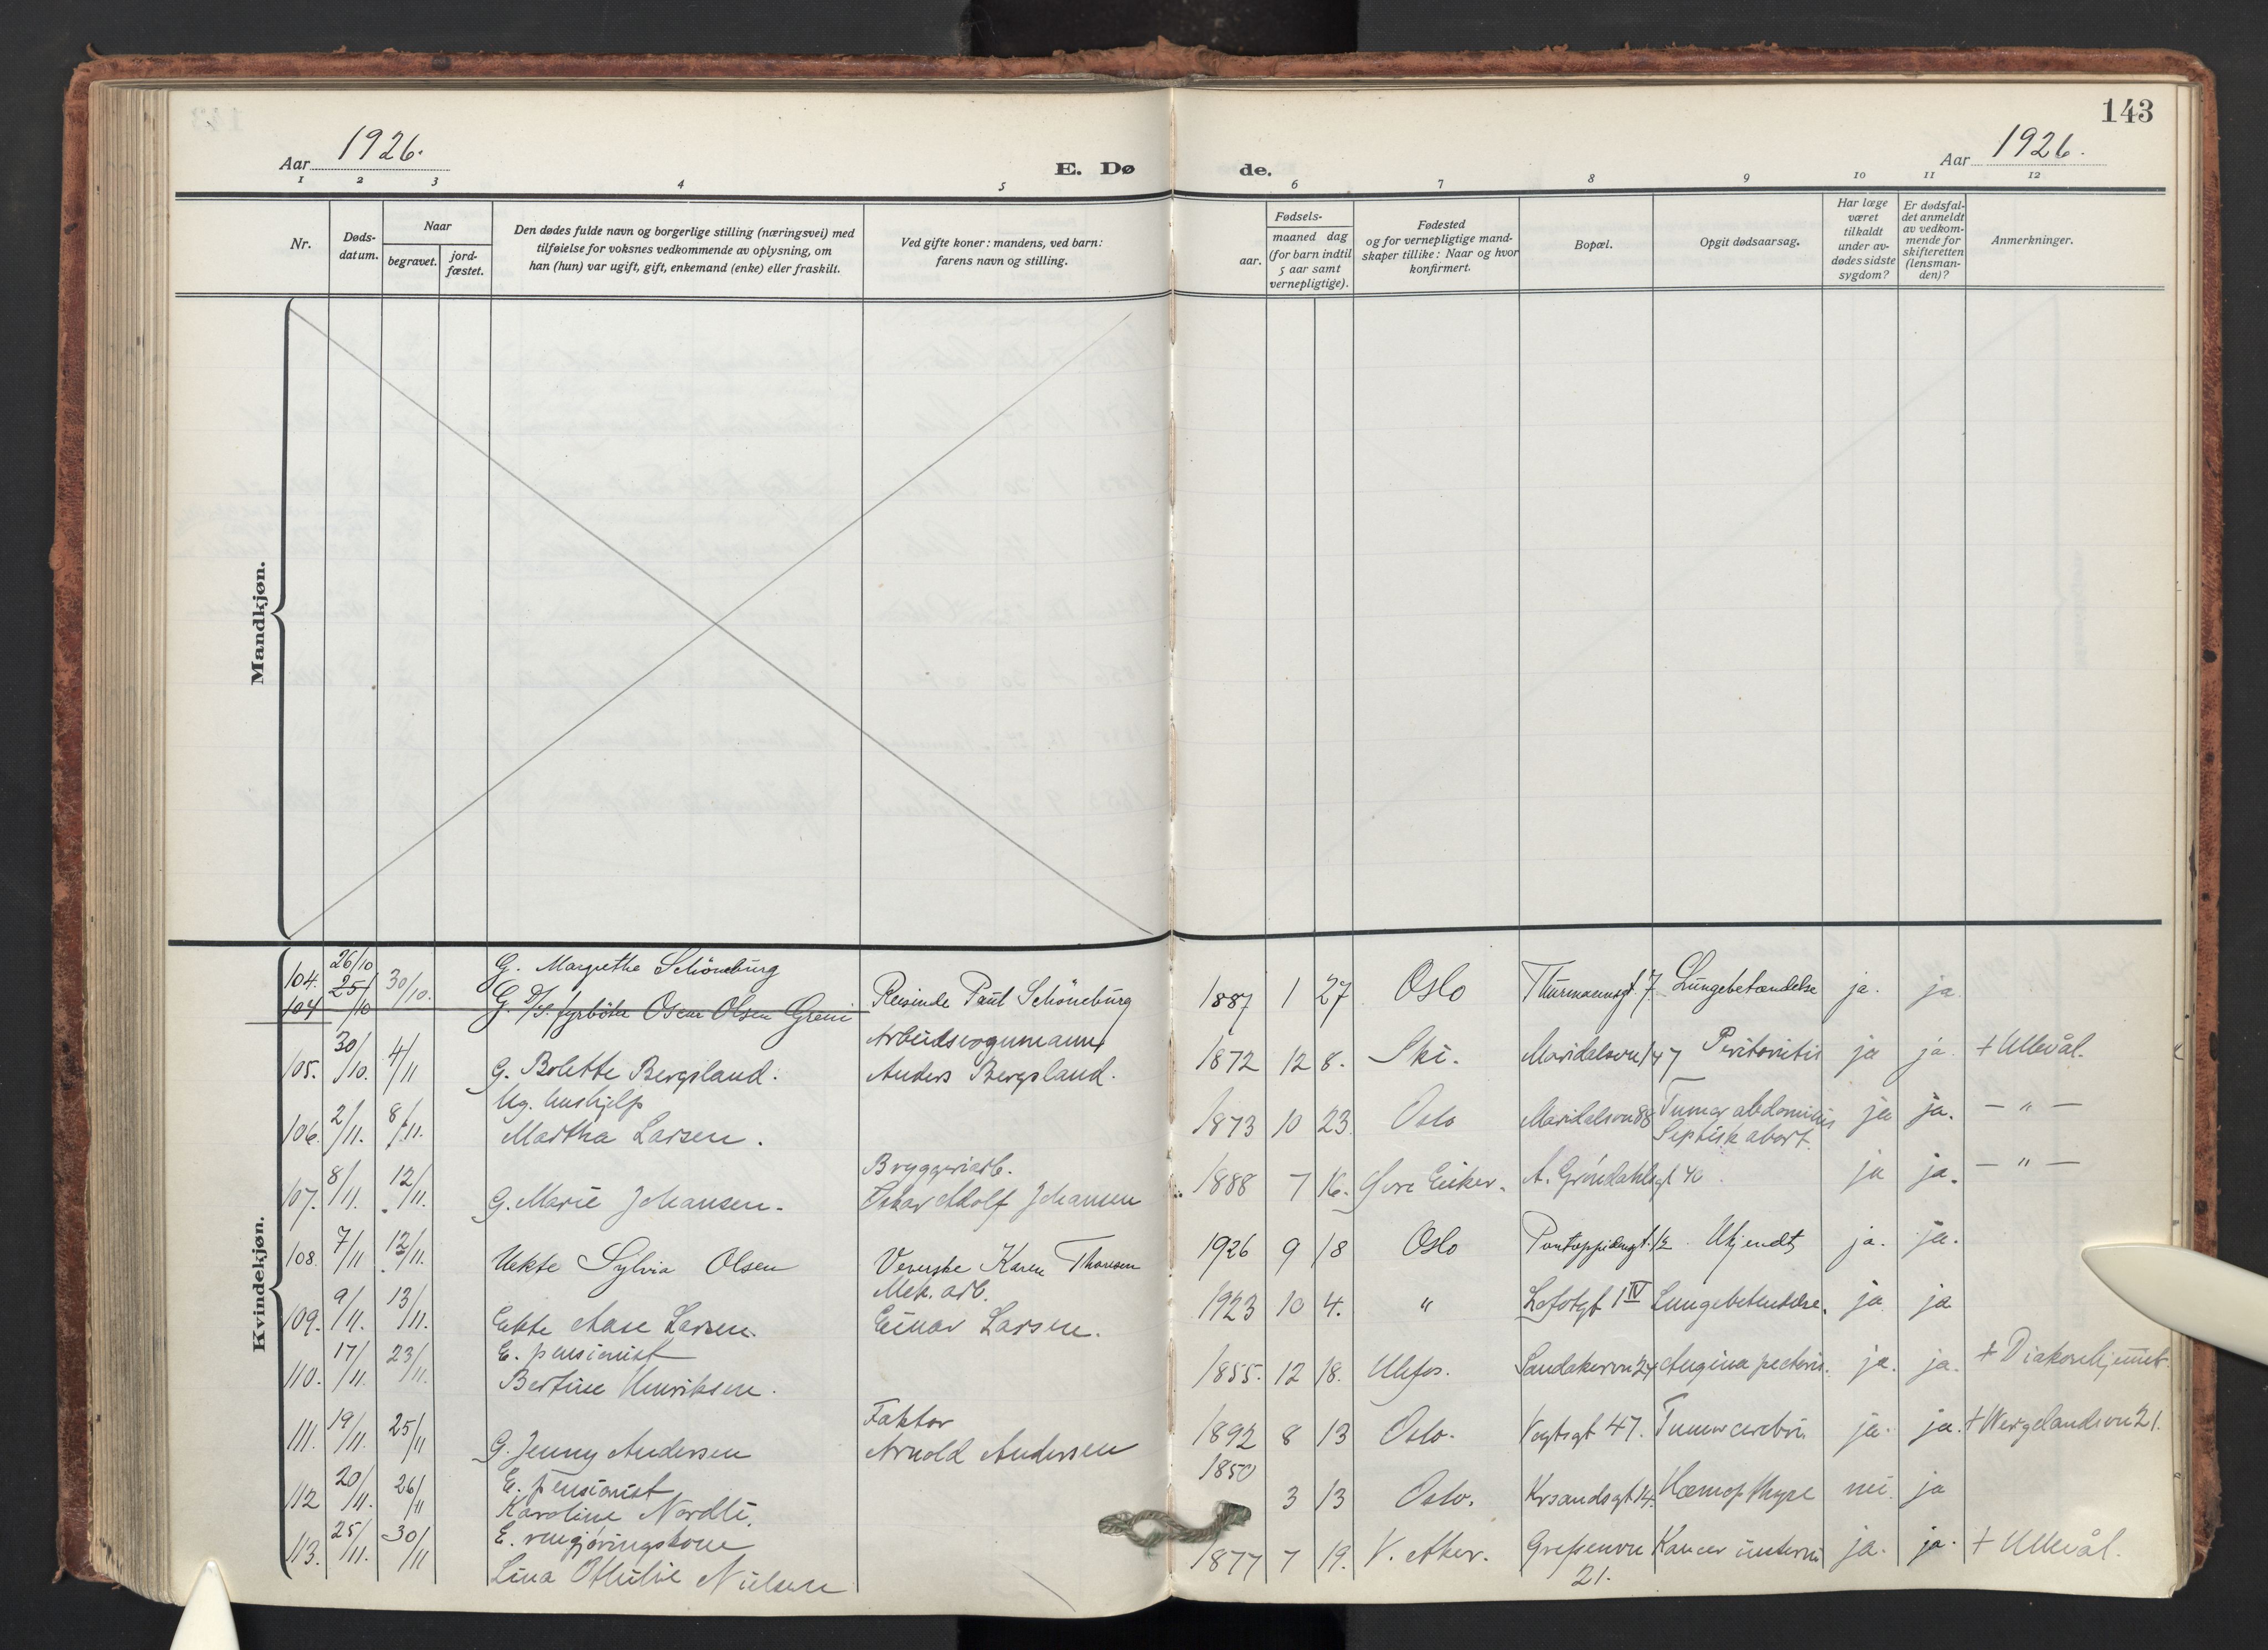 143
Aar 1926.
E. Dø
de.
Aar 1926.
1 2 3 4 5 6 7 8 9 10 11 12
Nr.
Døds-
datum.
Naar
begravet.
jord-
fæstet.
Den dødes fulde navn og borgerlige stilling (næringsvei) med
tilføielse for voksnes vedkommende av oplysning, om
han (hun) var ugift, gift, enkemand (enke) eller fraskilt.
Ved gifte koner: mandens, ved barn:
farens navn og stilling.
Fødsels-
aar.
maaned dag
(for barn indtil
5 aar samt
vernepligtige).
Fødested
og for vernepligtige mand-
skaper tillike: Naar og hvor
konfirmert.
Bopæl.
Opgit dødsaarsag.
Har læge
været
tilkaldt
under av-
dødes sidste
sygdom?
Er dødsfal-
det anmeldt
av vedkom-
mende for
skifteretten
(lensman-
den)?
Anmerkninger.
Mandkjøn.
Kvindekjøn.
104. 26/10 30/10. G. Margrethe Schöneburg Reisende Paul Schöneburg 1887 1 27 Oslo Thurmannsgt. 7. Lungebetændelse ja. ja
104 25/10 G. fyrbøter Oscar Olsen Greni
Arbeidsvognmann
105. 30/10. 4/11 G. Bolette Bergsland. Anders Bergsland. 1872 12 8. Ski. Maridalsvn 147 Peritonitis ja ja + Ullevål.
Ug. hushjelp
106. 2/11. 8/11. Martha Larsen. 1873 10 23. Oslo Maridalsvn 88 Tumor abdominis ja ja. — " —
Septisk abort.
Bryggeriarb.
107. 8/11. 12/11. G. Marie Johansen. Oskar Adolf Johansen 1888 7 16. Øvre Eiker. A. Gröndahlsgt 40 ja ja. — " —
108. 7/11 12/11. Uekte Sylvia Olsen Veverske Karen Thoresen 1926 9 18 Oslo Pontoppidansgt. 12 Ukjendt ja. ja.
Mek. arb.
109. 9/11. 13/11. Ekte Aase Larsen. Einar Larsen. 1923 10 4. " Lofotgt 1 IV Lungebetendelse. ja ja
E. pensionist
110. 17/11. 23/11. Bertine Henriksen. 1855. 12 18. Ulefos. Sandakervn 24 Angina pectoris. ja. ja. + Diakonhjemmet.
Faktor
111. 19/11. 25/11 G. Jenny Andersen Arnold Andersen 1892 8 13 Oslo. Vogtsgt 47. Tumor cerebri ja. ja. + Wergelandsvn 21.
E. pensionist
112 20/11. 26/11 Karoline Nordli. 1850 3 13 Oslo. Krsandsgt 14. Hæmopthyse nei. ja
E. rengjøringskone
113. 25/11. 30/11 Lina Othilie Nielsen 1877 7 19. V. Aker. Grefsenvn Kancer uteri ja. ja. + Ullevål.
21.